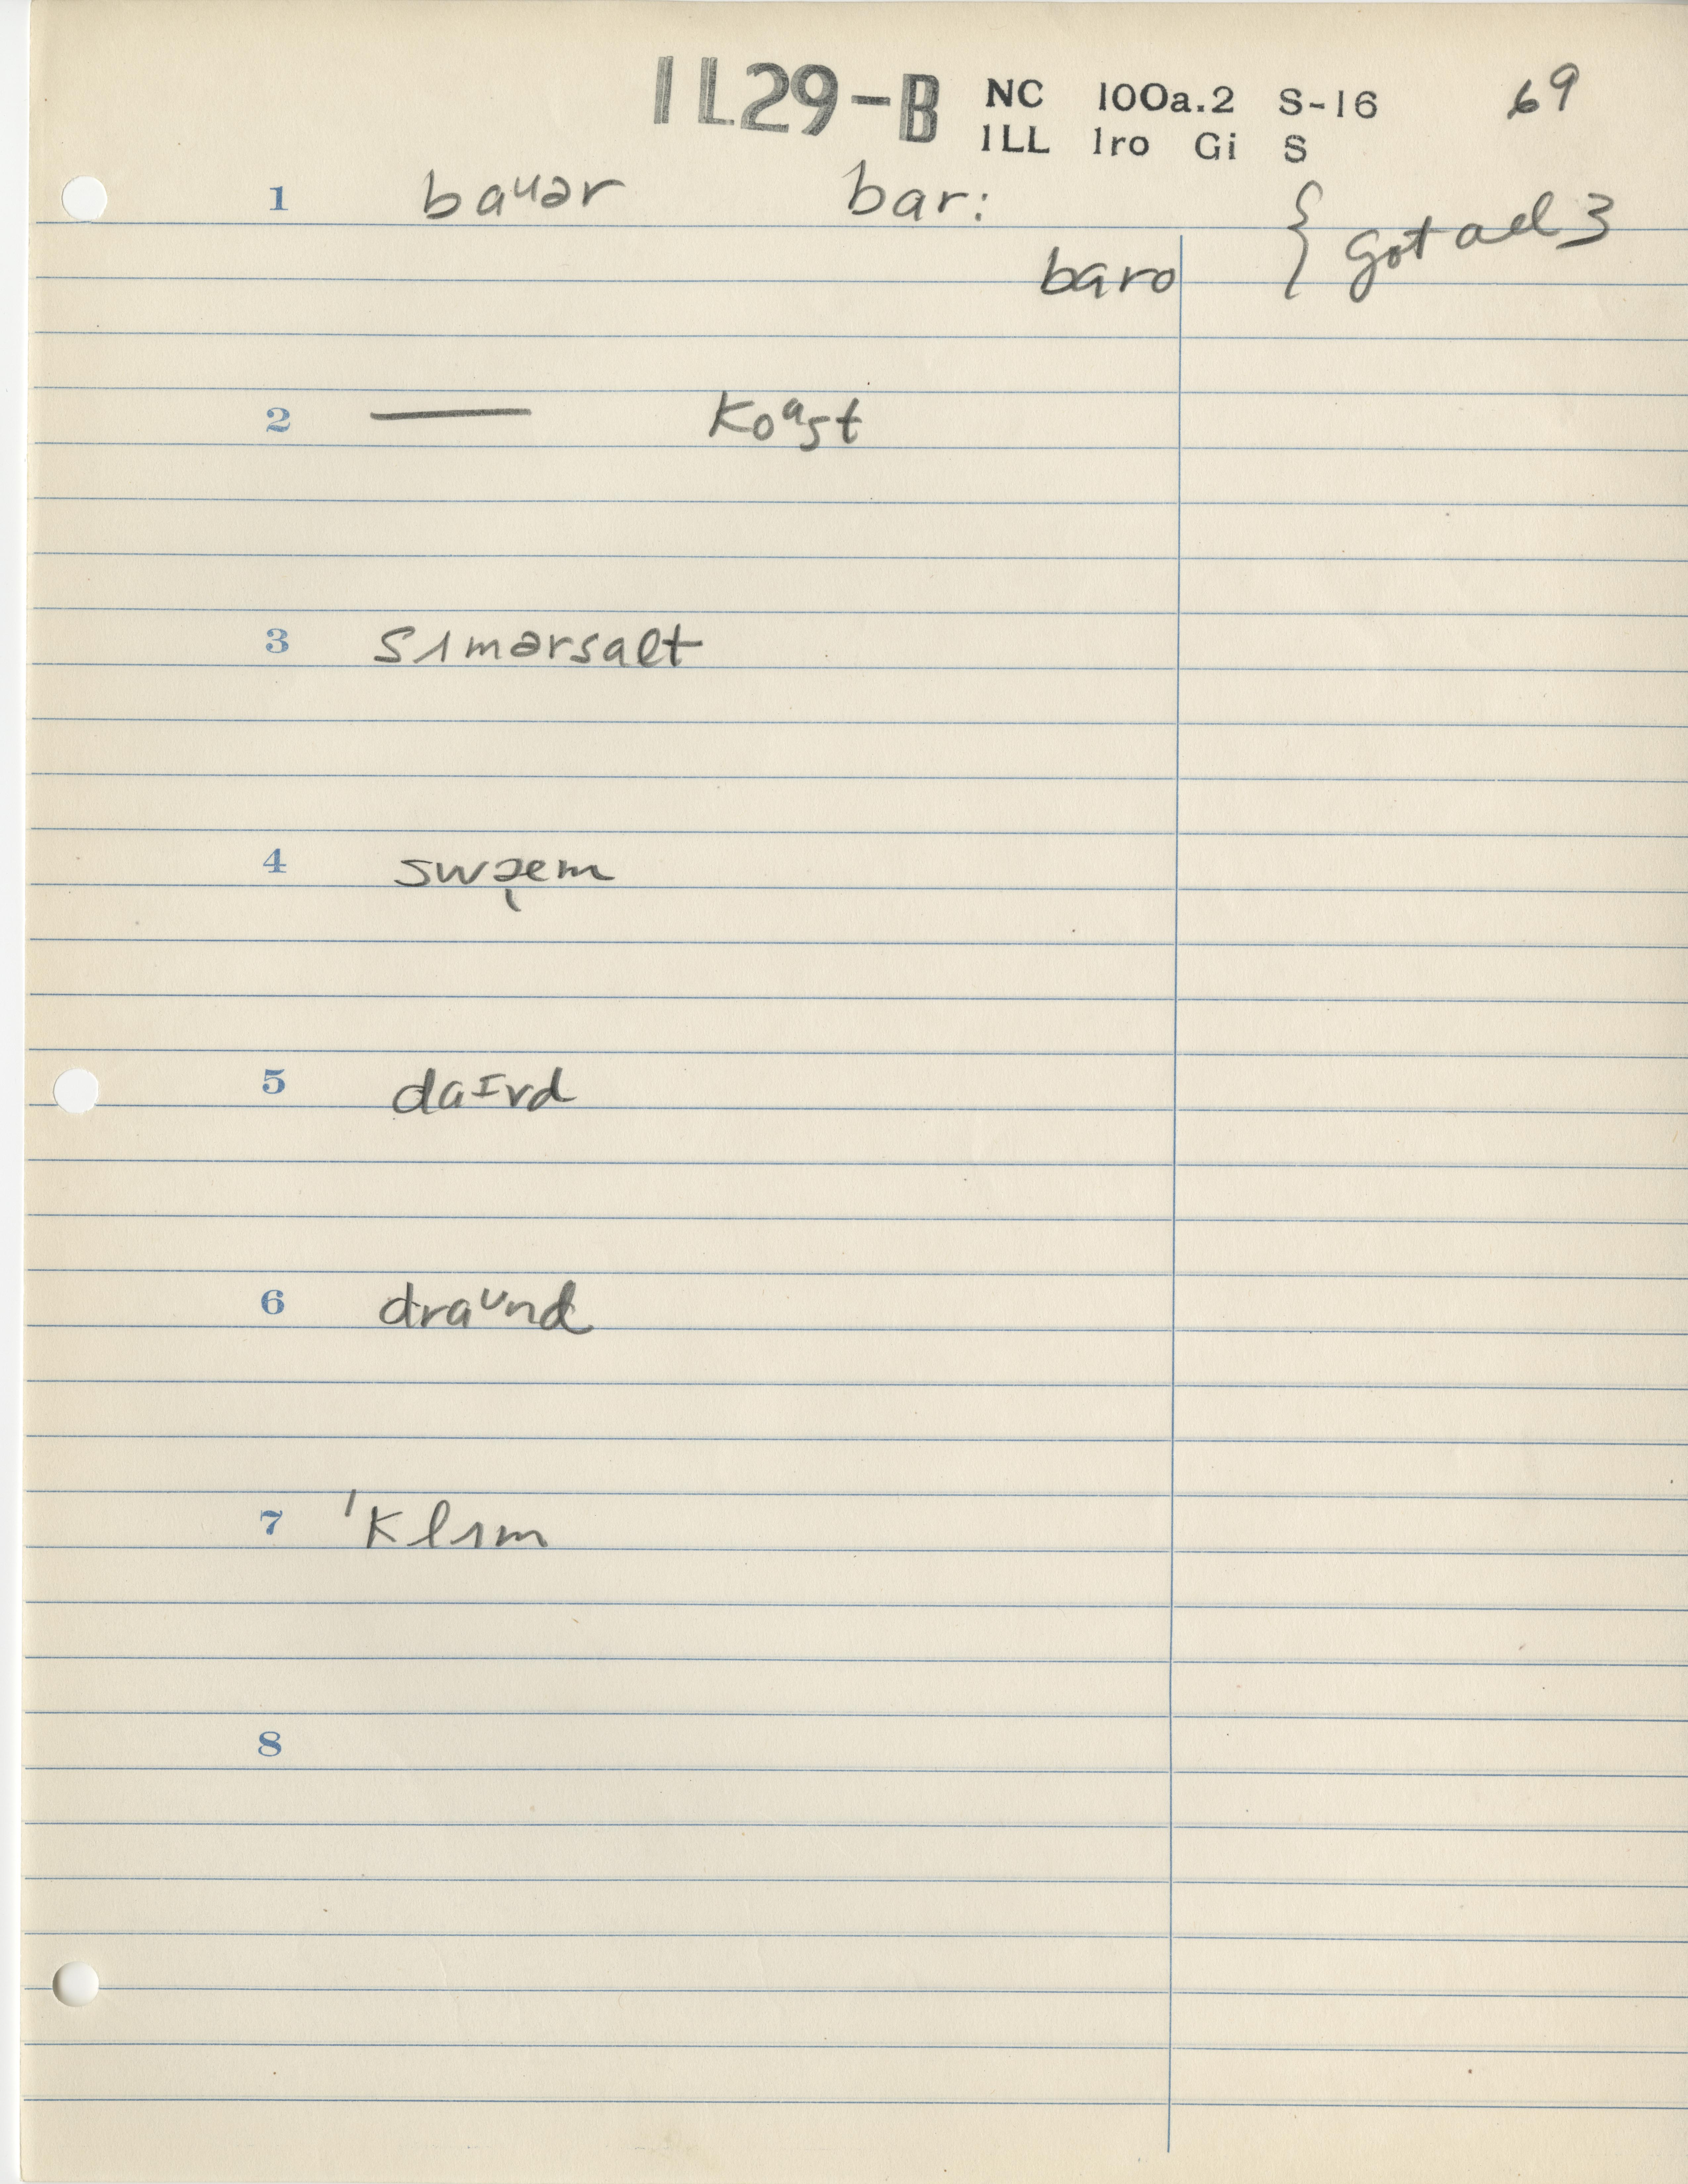 1L29-B NC 100a.2 S-16 69
ILL Iro Gi S
1 baᵘər bar: { got all 3
baro
2 — koᵊst
3 sɪmərsalt
4 swəem
5 daɪvd
6 draᵘnd
7 'klɪm
8